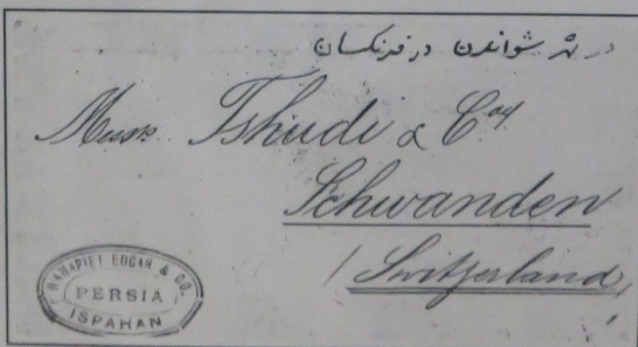 در شهر شواندن در فرنكسان
Messrs. Tshudi & Coy
Schwanden
/ Switzerland,
HAHAPIET EDGAR & CO.
PERSIA
ISPAHAN